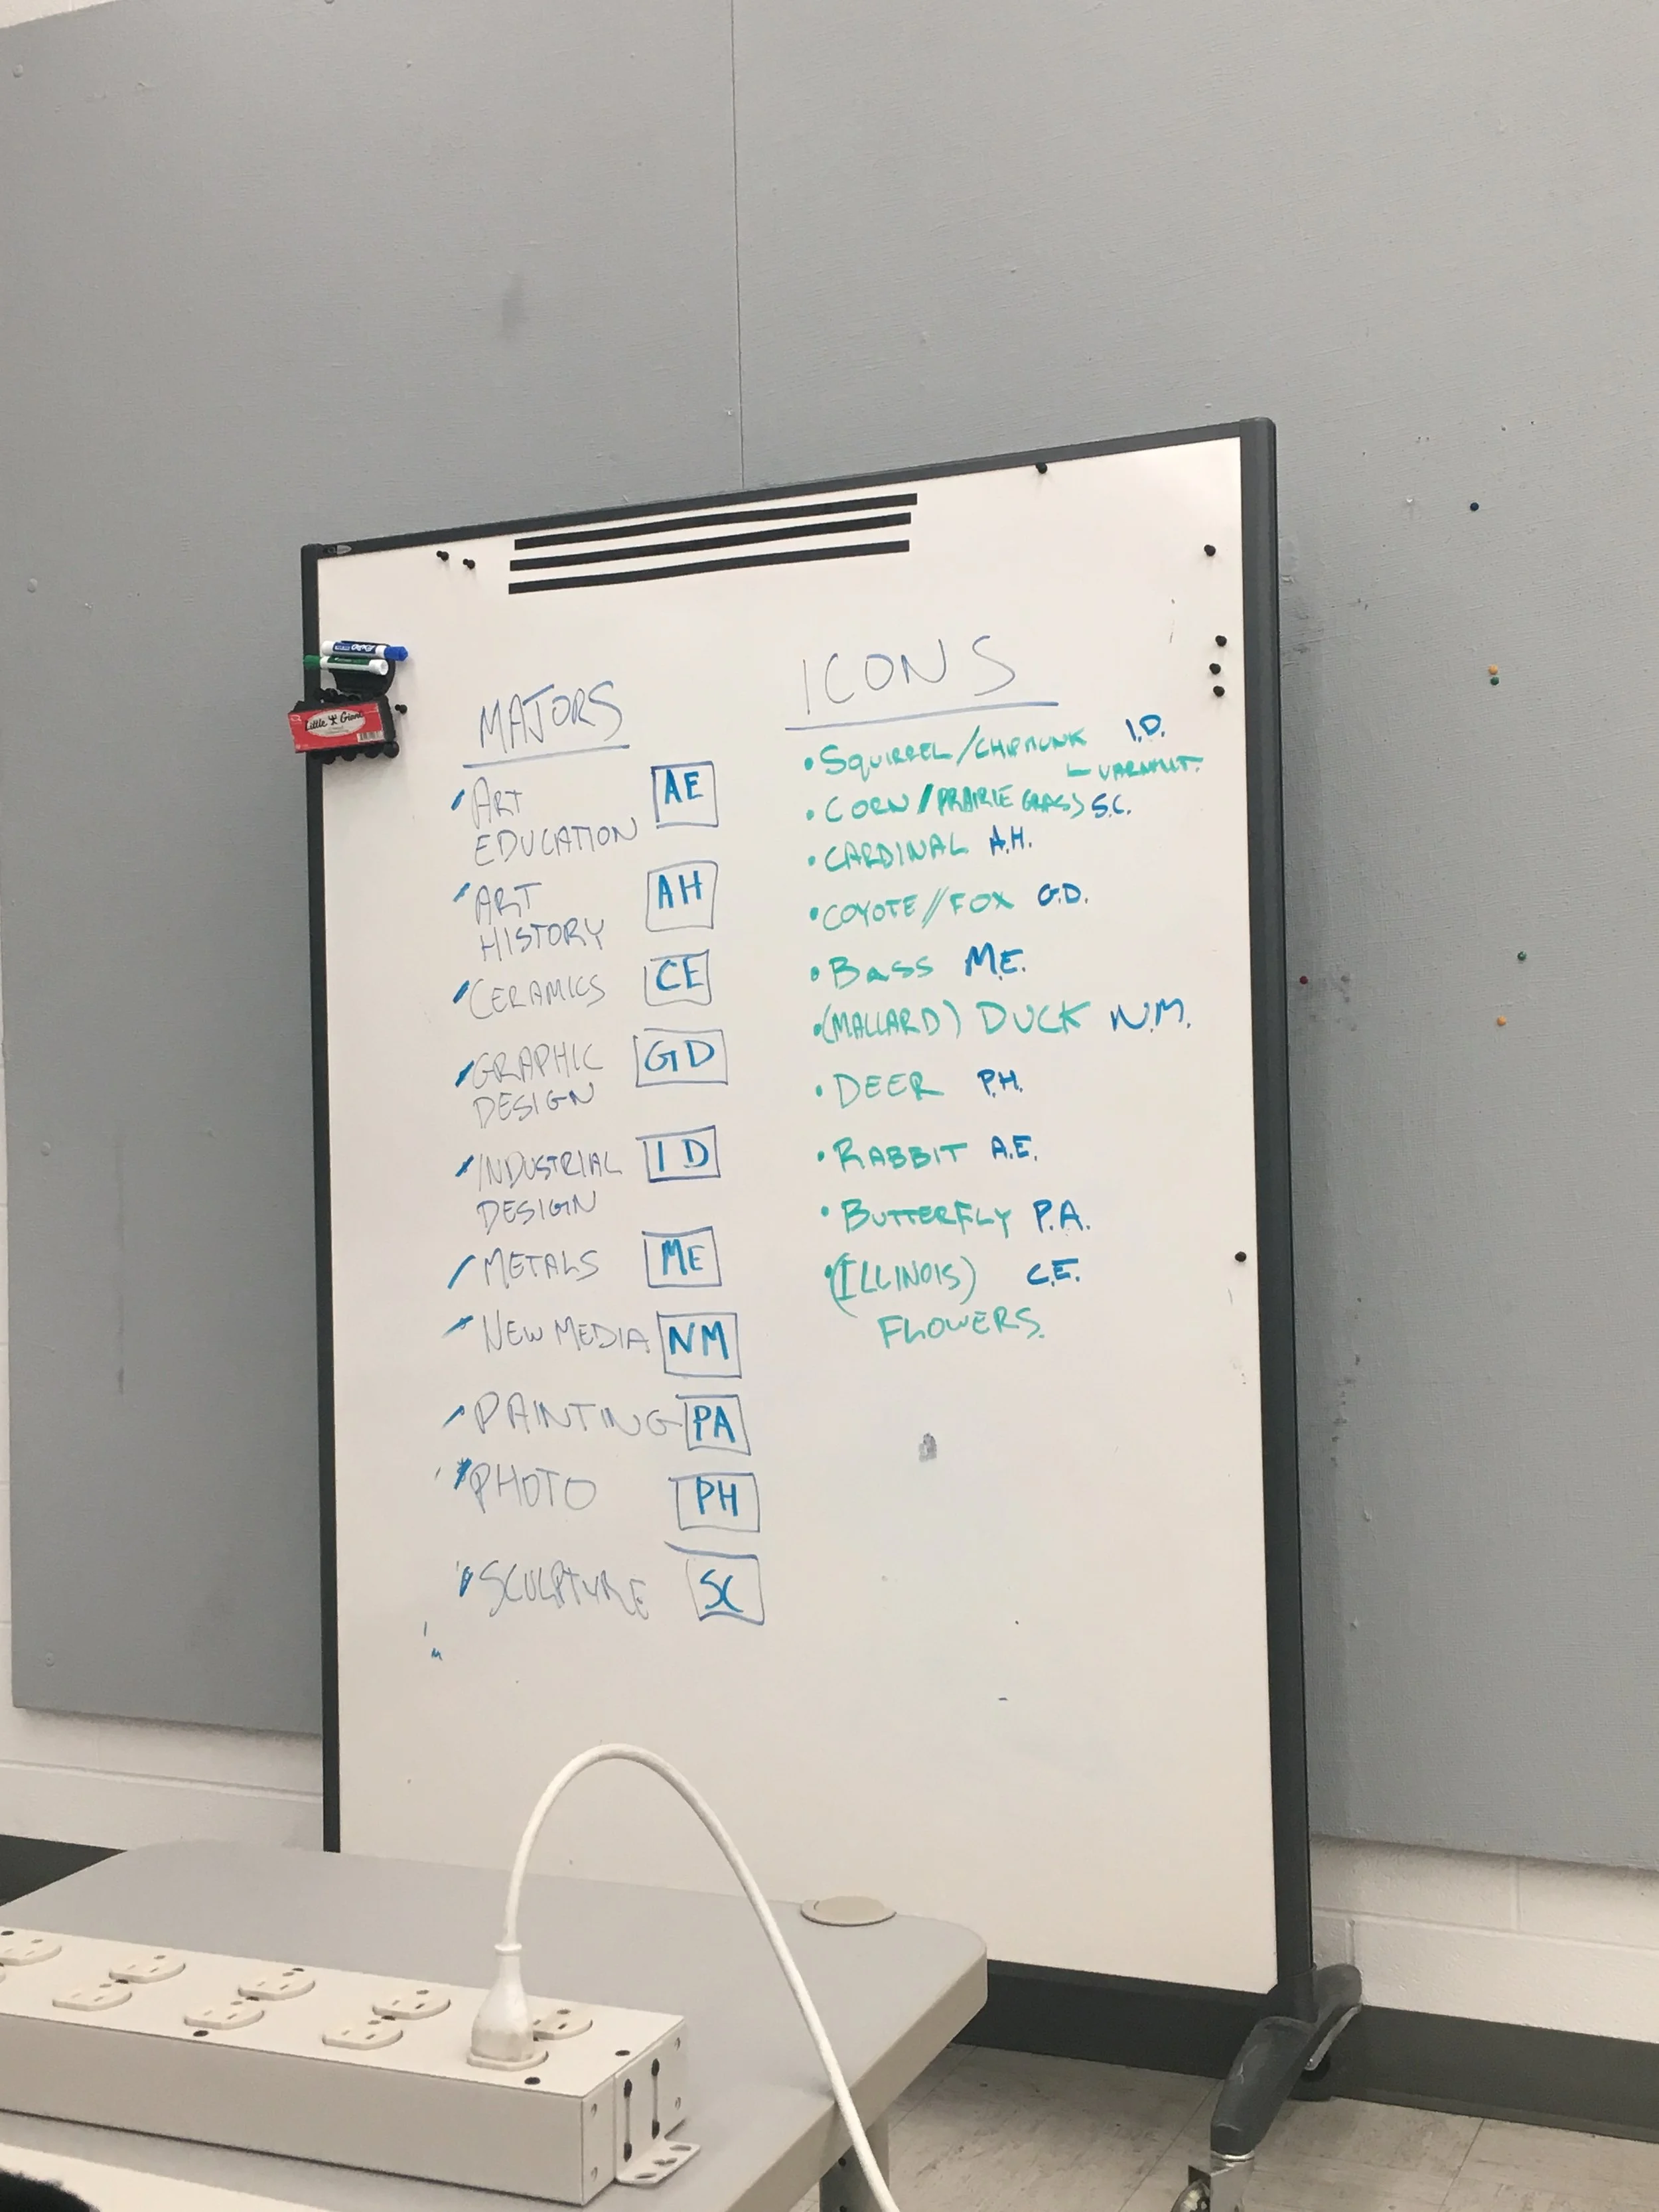 MAJORS
ART
EDUCATION
AE
ART
HISTORY
AH
CERAMICS
CE
GRAPHIC
DESIGN
GD
INDUSTRIAL
DESIGN
ID
METALS
ME
NEW MEDIA
NM
PAINTING
PA
PHOTO
PH
SCULPTURE
SC
ICONS
• SQUIRREL/CHIPMUNK I.D.
• CORN/PRAIRIE GRASS S.C.
• CARDINAL A.H.
• COYOTE//FOX G.D.
• BASS M.E.
• (MALLARD) DUCK N.M.
• DEER P.H.
• RABBIT A.E.
• BUTTERFLY P.A.
• (ILLINOIS) C.E.
FLOWERS.
Little Giant
EXPO